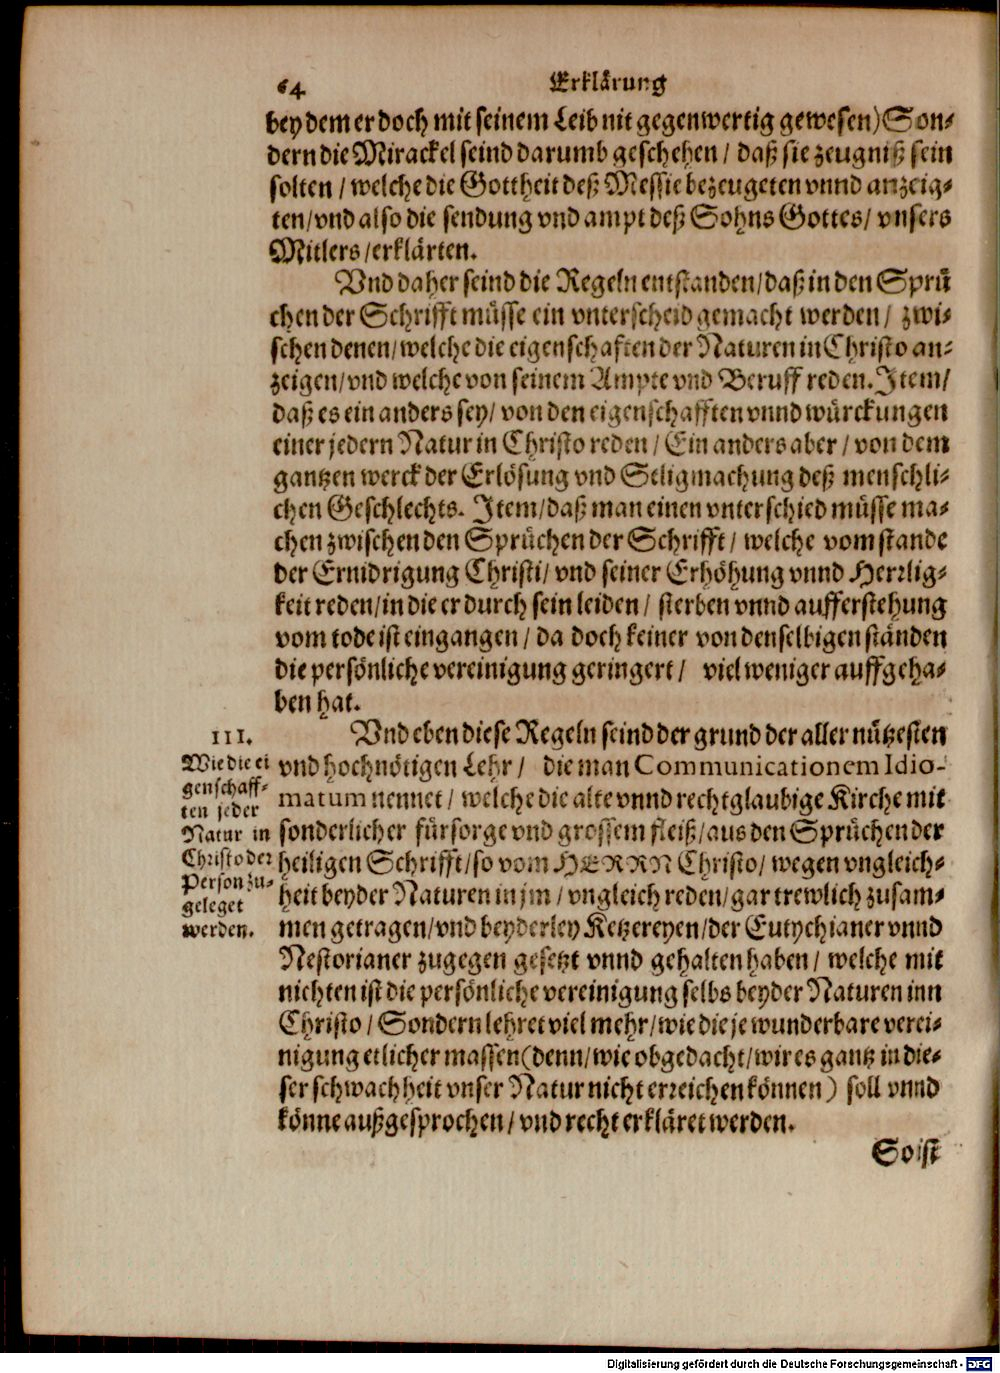 64
Erklärung
bey dem er doch mit seinem Leib nit gegenwertig gewesen) Son-
dern die Mirackel seind darumb geschehen / daß sie zeugniß sein
solten / welche die Gottheit deß Messie bezeugeten vnnd anzeig-
ten / vnd also die sendung vnd ampt deß Sohns Gottes / vnsers
Mitlers / erklärten.
Vnd daher seind die Regeln entstanden / daß in den Sprü
chen der Schrifft müsse ein vnterscheid gemacht werden / zwi-
schen denen / welche die eigenschaften der Naturen in Christo an-
zeigen / vnd welche von seinem Ampte vnd Beruff reden. Item /
daß es ein anders sey / von den eigenschafften vnnd würckungen
einer jedern Natur in Christo reden / Ein anders aber / von dem
gantzen werck der Erlösung vnd Seligmachung deß menschli-
chen Geschlechts. Item / daß man einen vnterschied müsse ma-
chen zwischen den Sprüchen der Schrifft / welche vom stande
der Ernidrigung Christi / vnd seiner Erhöhung vnnd Herrlig-
keit reden / in die er durch sein leiden / sterben vnnd aufferstehung
vom tode ist eingangen / da doch keiner von denselbigen ständen
die persönliche vereinigung geringert / viel weniger auffgeha-
ben hat.
III.
Wie die ei
genschaff-
ten jeder
Natur in
Christo der
Person zu-
geleget
werden.
Vnd eben diese Regeln seind der grund der aller nützesten
vnd hochnötigen Lehr / die man Communicationem Idio-
matum nennet / welche die alte vnnd rechtglaubige Kirche mit
sonderlicher fürsorge vnd grossem fleiß / aus den Sprüchen der
heiligen Schrifft / so vom HERRN Christo / wegen vngleich-
heit beyder Naturen in jm / vngleich reden / gar trewlich zusam-
men getragen / vnd beyderley Ketzereyen / der Eutychianer vnnd
Nestorianer zugegen gesetzt vnnd gehalten haben / welche mit
nichten ist die persönliche vereinigung selbs beyder Naturen inn
Christo / Sondern lehret viel mehr / wie die je wunderbare verei-
nigung etlicher massen (denn / wie obgedacht / wir es gantz in die-
ser schwachheit vnser Natur nicht erreichen können) soll vnnd
könne außgesprochen / vnd recht erkläret werden.
So ist
Digitalisierung gefördert durch die Deutsche Forschungsgemeinschaft - DFG